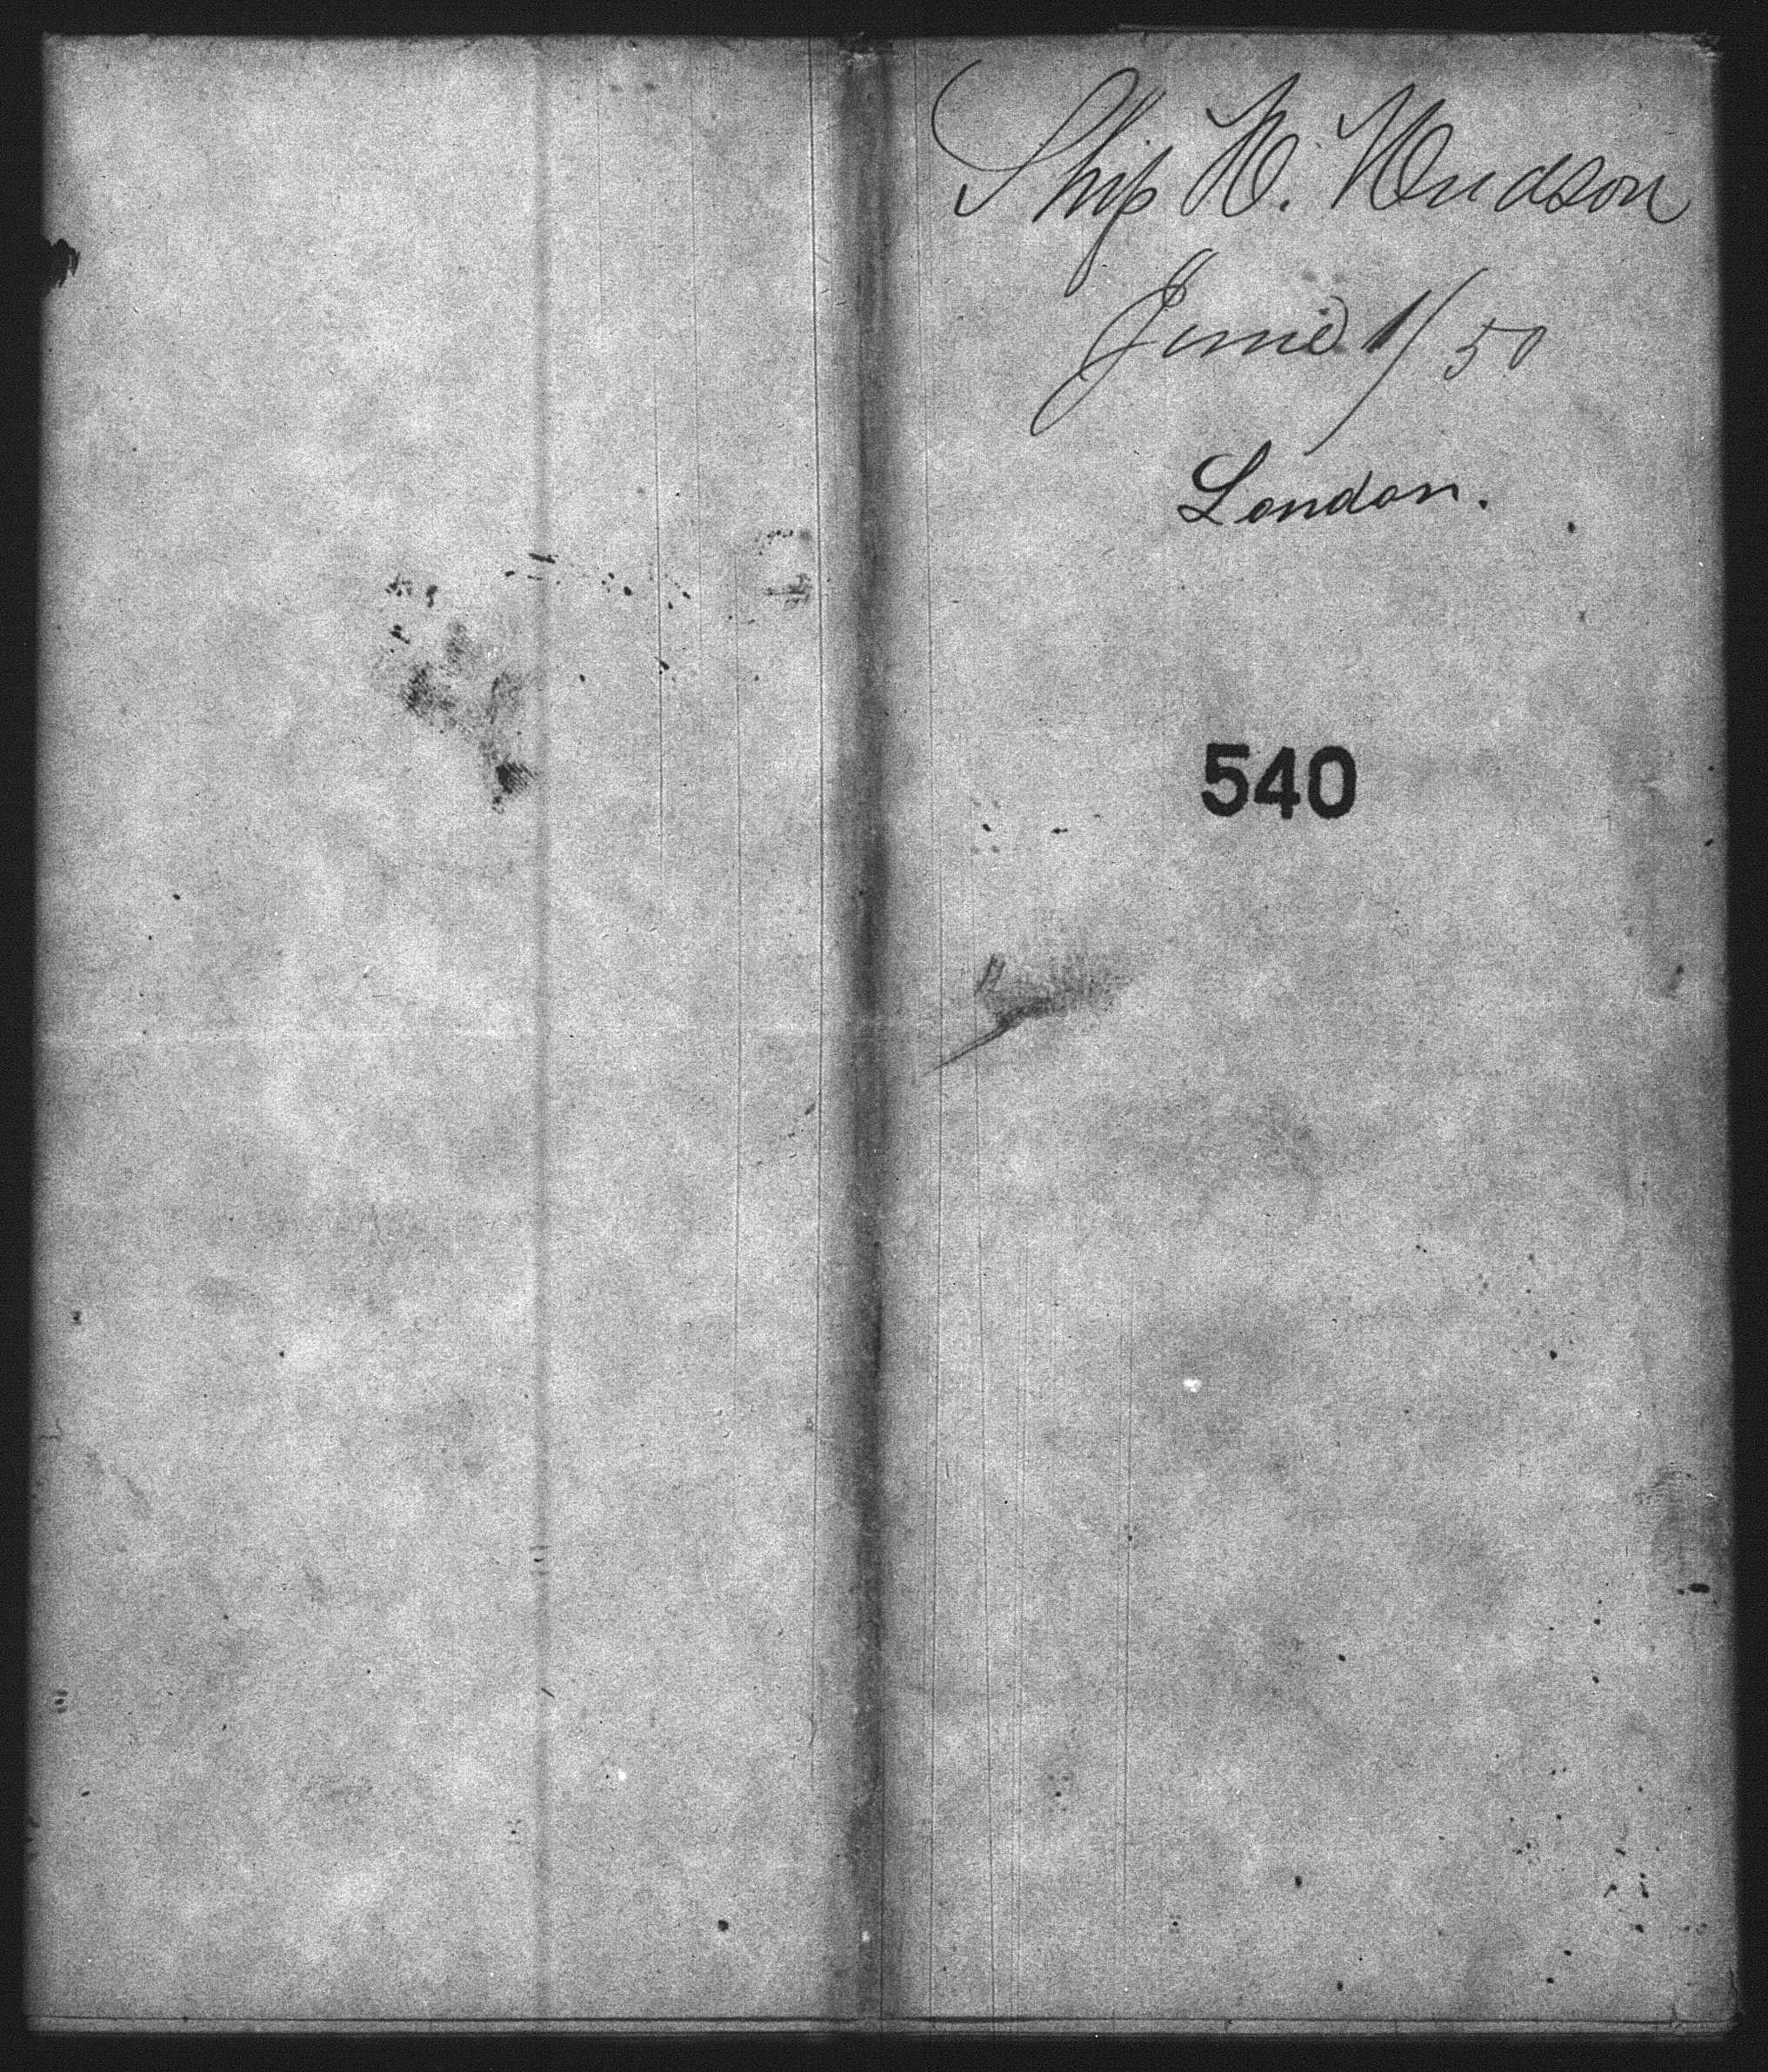 Ship H. Hudson
June 1/50
London.
540